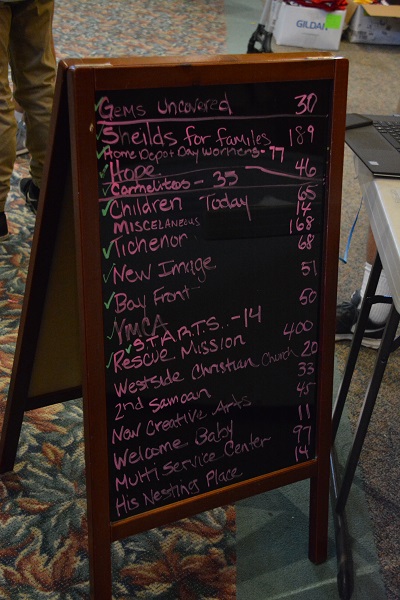 Gems Uncovered 30
Sheilds for familes 189
Home Depot Day workers - 77
Hope 46
Carmelitos - 35
Children Today 65
MISCELANEOUS 14
Tichenor 168
New Image 68
Bay Front 51
YMCA 50
S.T.A.R.T.S.. - 14
Rescue Mission 400
Westside Christian Church 20
2nd Samoan 33
New Creative Arts 45
Welcome Baby 11
Multi Service Center 97
His Nesting Place 14
GILDAN